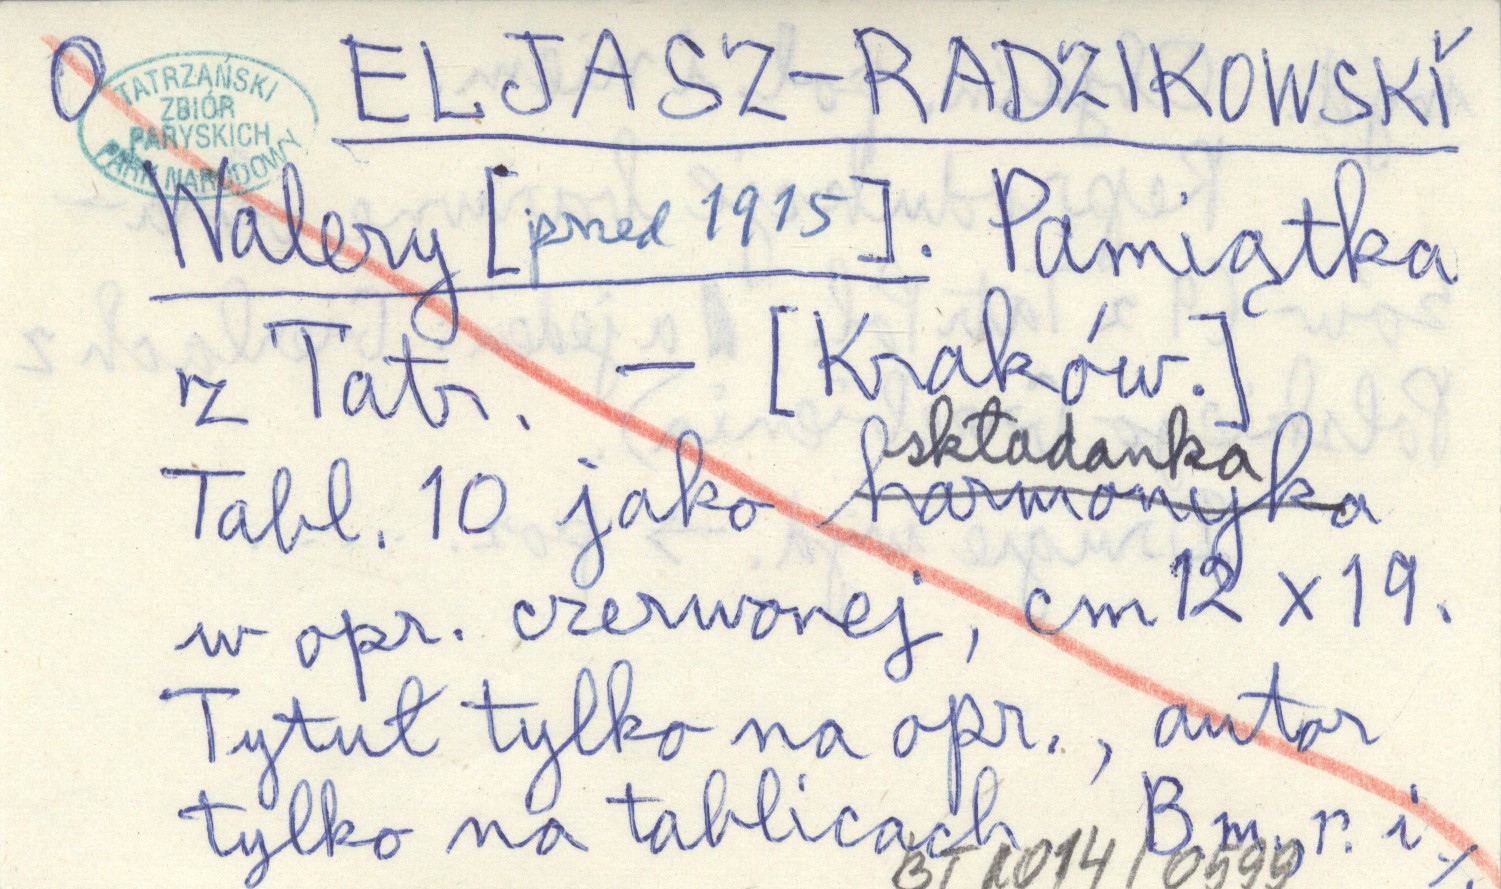 O ELJASZ-RADZIKOWSKI
TATRZAŃSKI
ZBIÓR
PARYSKICH
PARK NARODOWY
Walery [przed 1915]. Pamiątka
z Tatr. — [Kraków.]
składanka
Tabl. 10 jako harmonyka
w opr. czerwonej, cm 12 x 19.
Tytuł tylko na opr., autor
tylko na tablicach B.m.r. i
BT 2014 / 0599 ./.